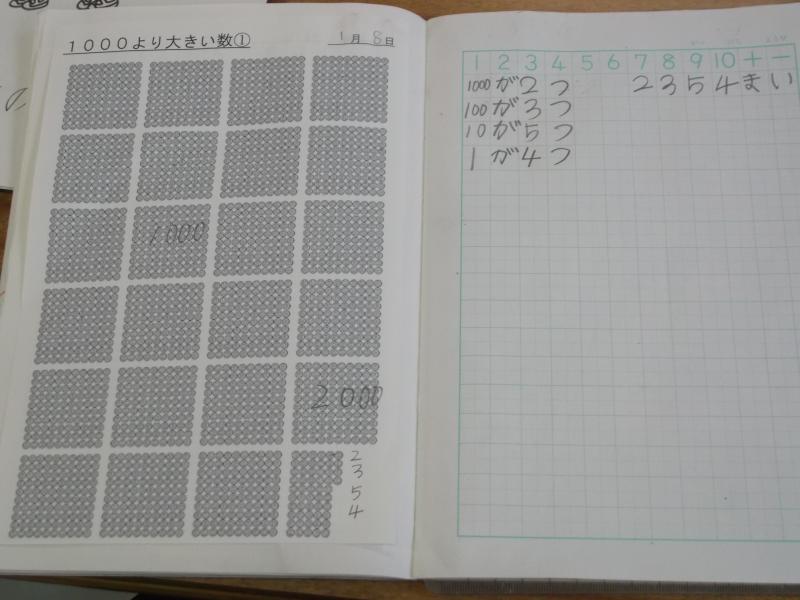 1000より大きい数①
1月8日
1000
2000
2
3
5
4
1 2 3 4 5 6 7 8 9 10 十 一
1000が2つ 2354まい
100が3つ
10が5つ
1が4つ